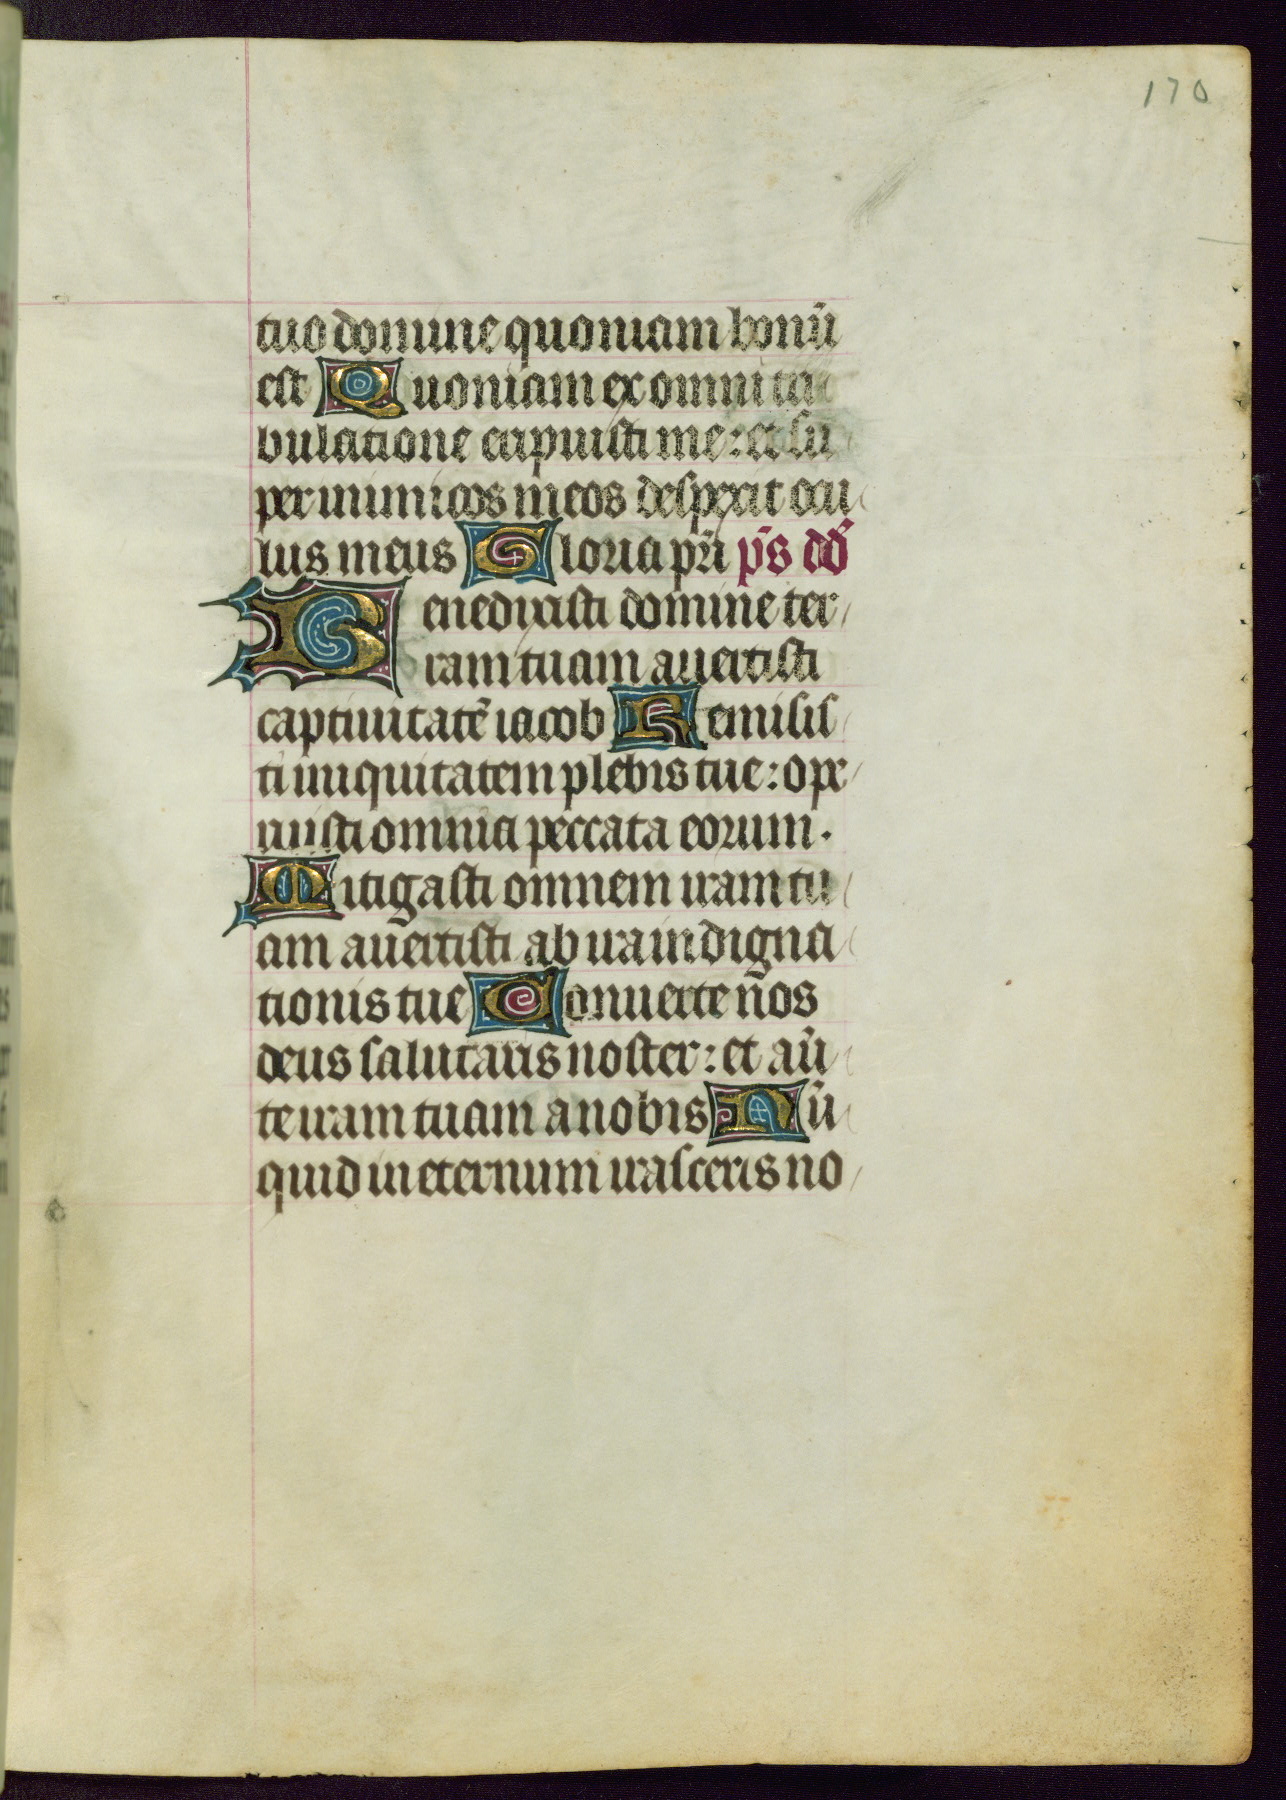 170
tuo domine quoniam bonū
est Quoniam ex omni tri
bulatione eripuisti me: et su
per inimicos meos despexit ocu
lus meus Gloria pr̄i ps̄ dd̄
Benedixisti domine ter
ram tuam auertisti
captiuitatē iacob Remisis
ti iniquitatem plebis tue: ope
ruisti omnia peccata eorum.
Mitigasti omnem iram tu
am auertisti ab ira indigna
tionis tue Conuerte n̄os
deus salutaris noster: et au̅
te iram tuam a nobis Nū
quid in eternum irasceris no